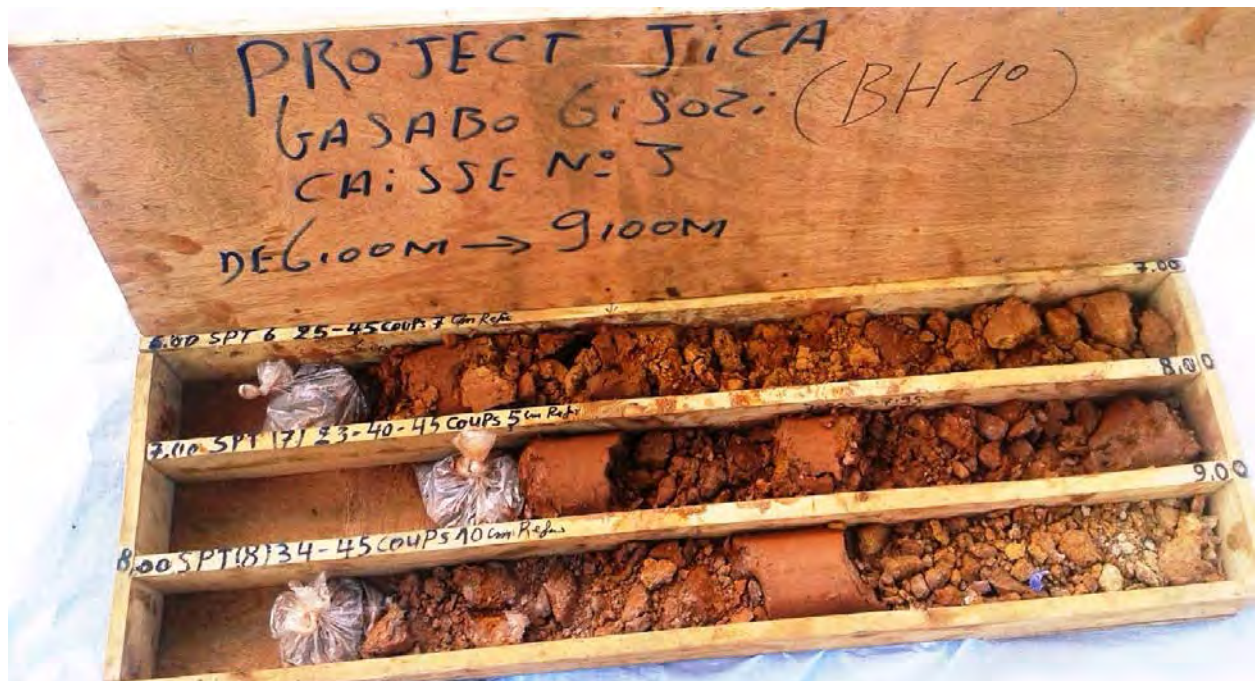 PROJECT JICA
GASABO GiSOZi (BH1°)
CAiSSE N° 3
DE 6,00M → 9,00M
7.00
6.00 SPT 6 25-45 COUPS 7 Cm Refus
8,00
7.00 SPT (7) 23-40-45 COUPS 5 cm Refus
9.00
8,00 SPT (8) 34-45 COUPS 10 cm Refus